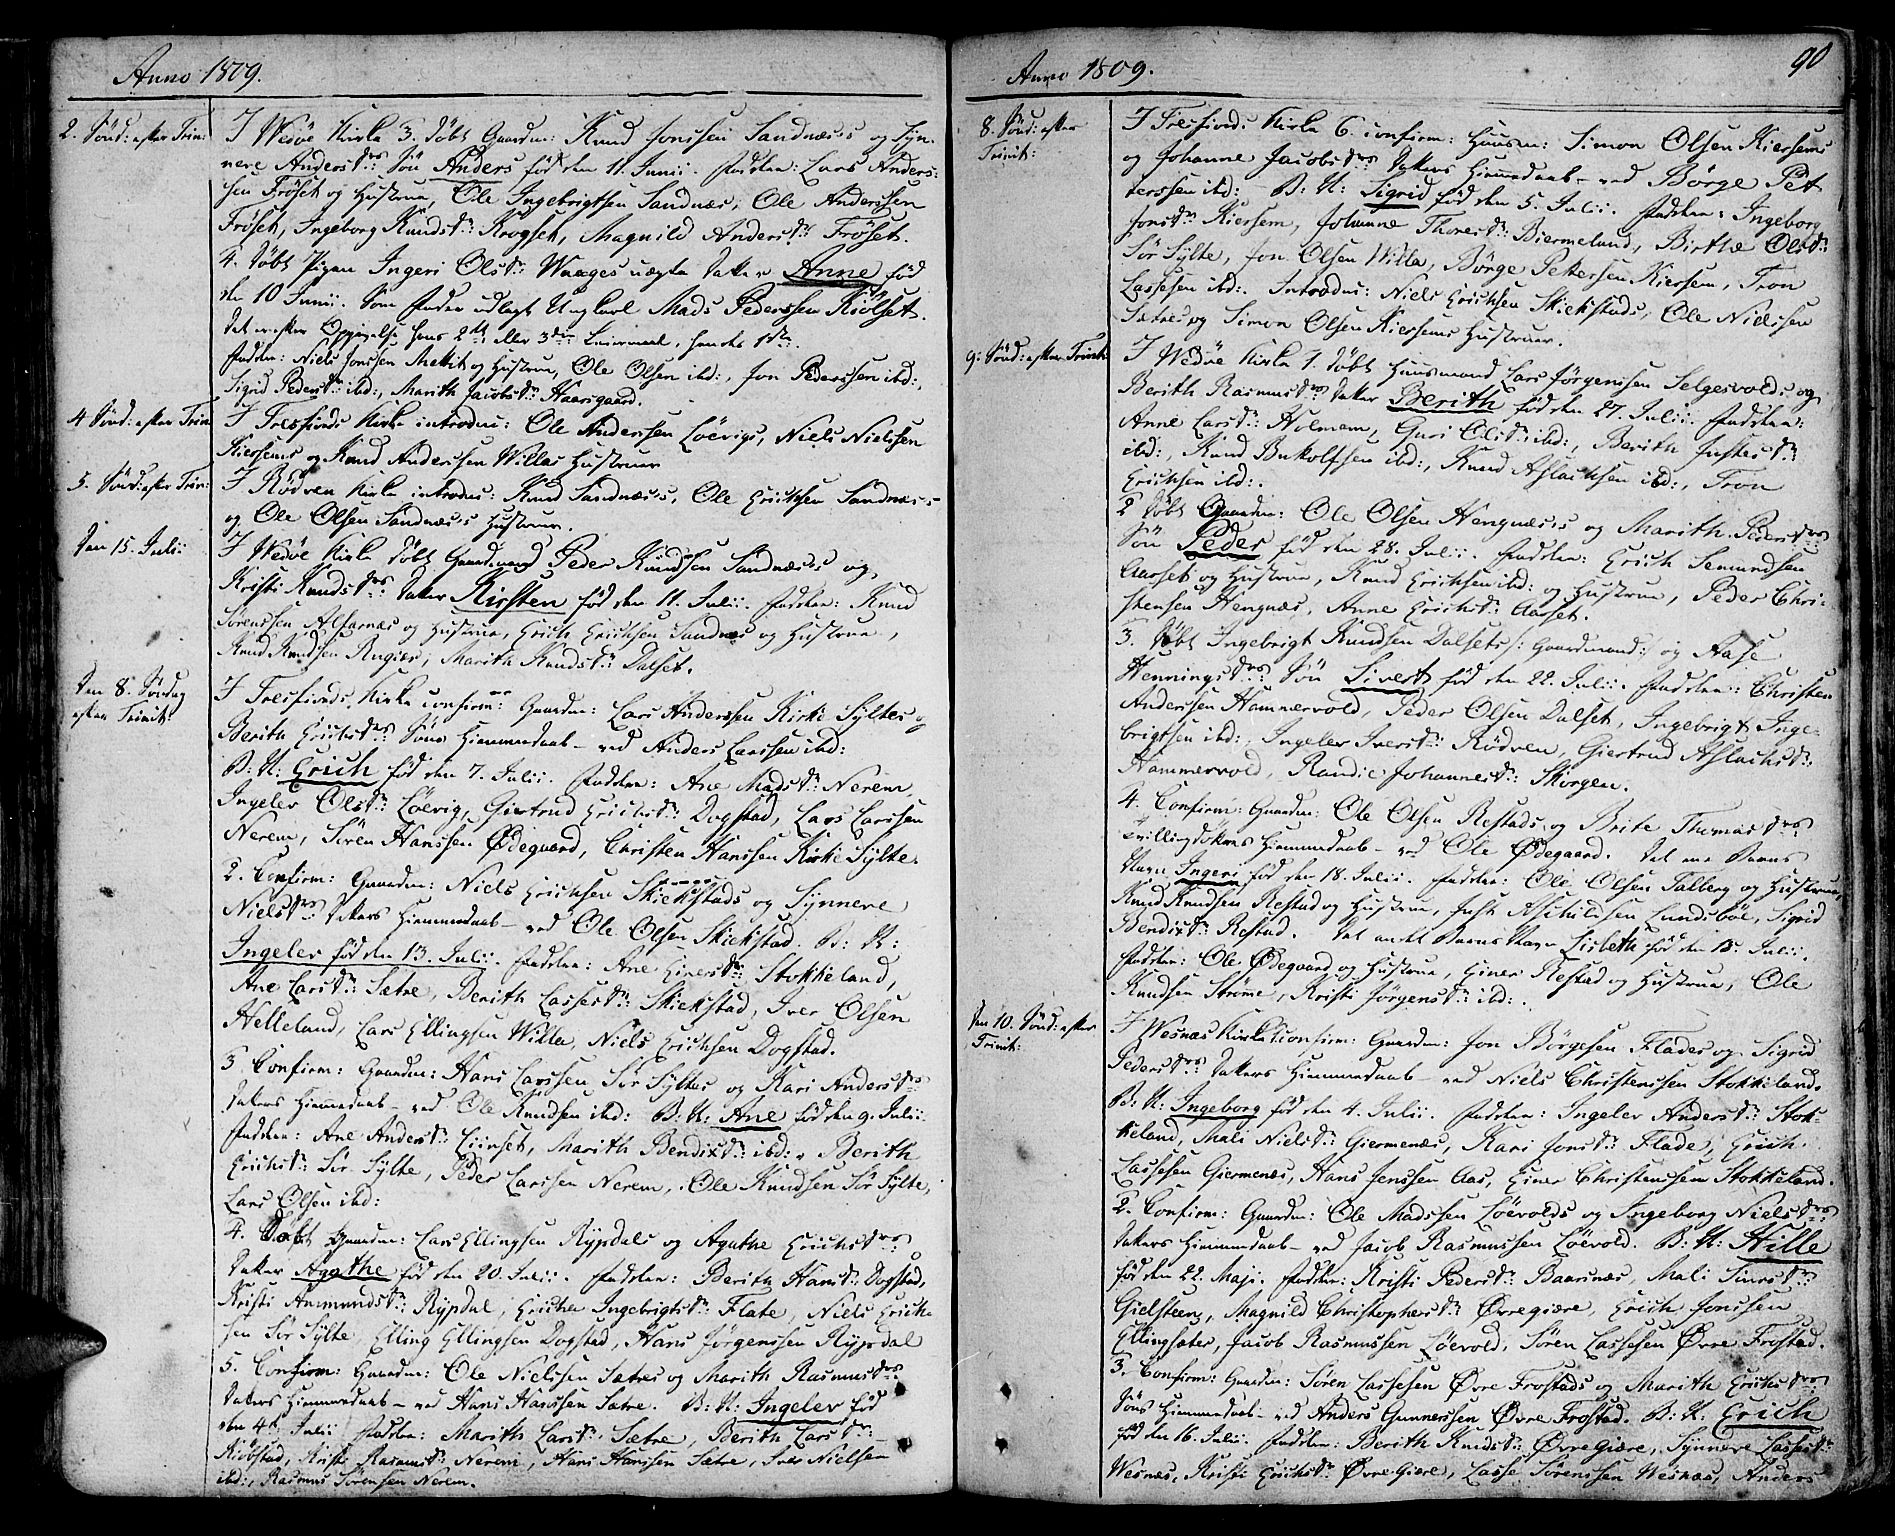 Anno 1809.
2. Sønd: efter Trin:
I Wedøe Kirke 3. døbt Gaardm: Knud Jonssen Sandnæs's og Syn-
nere Andersdr:s Søn Anders fød den 11. Junii. Faddere: Lars Anders-
sen Frøset og Hustrue, Ole Ingebrigtsen Sandnæs, Ole Anderssen
Frøset, Ingeborg Knudsdr: Krogset, Magnild Andersdr: Frøset.
4. Døbt Pigen Ingeri Olsdr: Waages uægte Datter Anne fød
den 10 Junii. Som Fader udlagt Ungkarl Mads Pederssen Kiølset.
Det er efter Opgivelse hans 2det eller 3die Leiermaal, hendes 1ste.
Faddere: Niels Jonssen Mettet og Hustrue, Ole Olsen ibd:, Jon Pederssen ibd:,
Sigrid Pedersdr: ibd:, Marith Jacobsdr: Haarsgaard.
4 Sønd: efter Trin:
I Tresfiords Kirke introdus: Ole Anderssen Løevigs, Niels Nielssen
Kiersems og Knud Anderssen Willas Hustruer
5. Sønd: efter Trin:
I Rødven Kirke introdus: Knud Sandnæs's, Ole Erichsen Sandnæs's
og Ole Olsen Sandnæs's Hustruer.
Den 15. Julii
I Wedøe Kirke døbt Gaardmand Peder Knudsen Sandnæs's og
Kristi Knudsdr:s Datter Kirsten fød den 11. Julii. Faddere: Knud
Sørenssen Alfarnæs og Hustrue, Erich Erichsen Sandnæs og Hustrue,
Knud Knudsen Rugiær, Marith Knudsdr: Dalset.
Den 8. Søndag
efter Trinit:
I Tresfiords Kirke confirm: Gaardm: Lars Anderssen Kirke Syltes og
Berith Erichsdr:s Søns Hiemmedaab - ved Anders Larssen ibd:
B: N: Erich fød den 7. Julii. Faddere: Ane Madsdr: Nerem,
Ingelev Olsdr: Løevig, Giertrud Erichsdr: Dogstad, Lars Larssen
Nerem, Søren Hanssen Ødegaard, Christen Hanssen Kirke Sylte.
2. Confirm: Gaardm: Niels Erichsen Skiekstads og Synnere
Nielsdr:s Datters Hiemmedaab - ved Ole Olsen Skiekstad. B: N:
Ingelev fød den 13. Julii. Faddere: Ane Einersdr: Stokkeland,
Ane Larsdr: Sætre, Berith Lassesdr: Skiekstad, Iver Olsen
Helleland, Lars Ellingsen Willa, Niels Erichsen Dogstad.
3 Confirm: Gaardm: Hans Larssen Sør Syltes og Kari Andersdr:s
Datters Hiemmedaab - ved Ole Knudsen ibd: B: N: Ane fød den 9. Julii.
Faddere: Ane Andersdr: Liinset, Marith Bendixdr: ibd:, Berith
Erichsdr: Sør Sylte, Peder Larssen Nerem, Ole Knudsen Sør Sylte,
Lars Olsen ibd:
4. Døbt Gaardm: Lars Ellingsen Rypdals og Agathe Erichsdr:s
Datter Agathe fød den 20. Julii. Faddere: Berith Hansdr: Dogstad,
Kristi Ammundsdr: Rypdal, Ingebrigtsdr: Flate, Niels Erich-
sen Sør Sylte, Elling Ellingsen Dogstad, Hans Jørgenssen Rypdal
5. Confirm: Gaardm: Ole Nielssen Sætres og Marith Rasmusdr:s
Datters Hiemmedaab - ved Hans Hanssen Sætre. B: N: Ingelev fød
den 4de Julii Faddere: Marith Larsdr: Sætre, Berith Larsdr:
Kirsti Rasmusdr: Nerem, Hans Hanssen Sætre, Iver Nielsen
ibd:, Rasmus Sørensen Nerem.
Anno 1809.
90
8. Sønd: efter
Trinit:
I Tresfiords Kirke 6. confirm: Huusm: Simon Olsen Kiersems
og Johanne Jacobsdr:s Datters Hiemmedaab - ved Børge Pet-
terssen ibd: - B: N: Sigrid fød den 5. Julii. Faddere: Ingeborg
Jonsdr: Kiersem, Johanne Thoresdr: Biermeland, Birthe Olsdr:
Sør Sylte, Jon Olsen Willa, Børge Pettersen Kiersem, Tron
Lassesen ibd:. Introdus: Niels Erichsen Skiekstads, Ole Nielssen
Sætres og Simon Olsen Kiersems Hustruer.
9. Sønd: efter Trinit:
I Wedøe Kirke 1. døbt Huusmand Lars Jørgenssen Selgesvolds og
Berith Rasmusdr:s Datter Berith fød den 27. Julii. Faddere:
Anne Larsdr: Holmem, Guri Olsdr: ibd:, Berith Justesdr:
ibd:, Knud Bukolfsen ibd:, Knud Aslachsen ibd:, Tron
Erichsen ibd:.
2 Døbt Gaardm: Ole Olsen Hengnæs's og Marith Pedersdr:s
Søn Peder fød den 28. Julii. Faddere: Erich Semundsen
Aarset og Hustrue, Knud Erichsen ibd: og Hustrue, Peder Chri-
stensen Hengnæs, Anne Erichsdr: Aarset.
3. Døbt Ingebrigt Knudsen Dalsets /: Gaardmand :/ og Aase
Henningsdr:s Søn Sivert fød den 22. Julii. Faddere: Christen
Anderssen Hammervold, Peder Olsen Dalset, Ingebrigt Inge-
brigtsen ibd:, Ingelev Iversdr: Rødven, Giertrud Aslachsdr:
Hammervold, Randie Johannesdr: Skorgen.
4. Confirm: Gaardm: Ole Olsen Restads og Brite Thomasdr:s
Tvillingdøtres Hiemmedaab - ved Ole Ødegaard. Det ene Barns
Navn Ingeri fød den 18. Julii. Faddere: Ole Olsen Talberg og Hustrue,
Knud Knudsen Restad og Hustrue, Just Aschildsen Lundsbøe, Sigrid
Bendixdr: Restad. Det andet Barns Navn Lisbeth fød den 18. Julii.
Faddere: Ole Ødegaard og Hustrue, Einer Restad og Hustrue, Ole
Knudsen Strøme, Kristi Jørgensdr: ibd:.
Den 10. Sønd: efter
Trinit:
I Wesnæs Kirke 1 confirm: Gaardm: Jon Børgesen Flades og Sigrid
Pedersdr:s Datters Hiemmedaab - ved Niels Christenssen Stokkeland.
B: N: Ingeborg fød den 4. Julii. Faddere: Ingelev Andersdr: Stok-
keland, Mali Nielsdr: Giermenæs, Kari Jonsdr: Flade, Erich
Lassesen Giermenæs, Hans Jenssen Aas, Einer Christenssen Stokkeland.
2. Confirm: Gaardm: Ole Madssen Løevolds og Ingeborg Nielsdr:s
Datters Hiemmedaab - ved Jacob Rasmussen Løevold. B: N: Hille
fød den 22. Maji. Faddere: Kristi Pedersdr: Baarsnæs, Mali Einersdr:
Gielsteen, Magnild Christophersdr: Øvregiære, Erich Jonssen
Ellingsæter, Jacob Rasmussen Løevold, Søren Lassesen Øvre Frostad.
3. Confirm: Gaardm: Søren Lassesen Øvre Frostads og Marith Erichsdr:s
Søns Hiemmedaab - ved Anders Gunnerssen Øvre Frostad. B: N: Erich
fød den 16. Julii. Faddere: Berith Knudsdr: Øvregiære, Synnere Lassesdr:
Wesnæs, Kristi Erichsdr: Øvregiære, Lasse Sørenssen Wesnæs, Anders